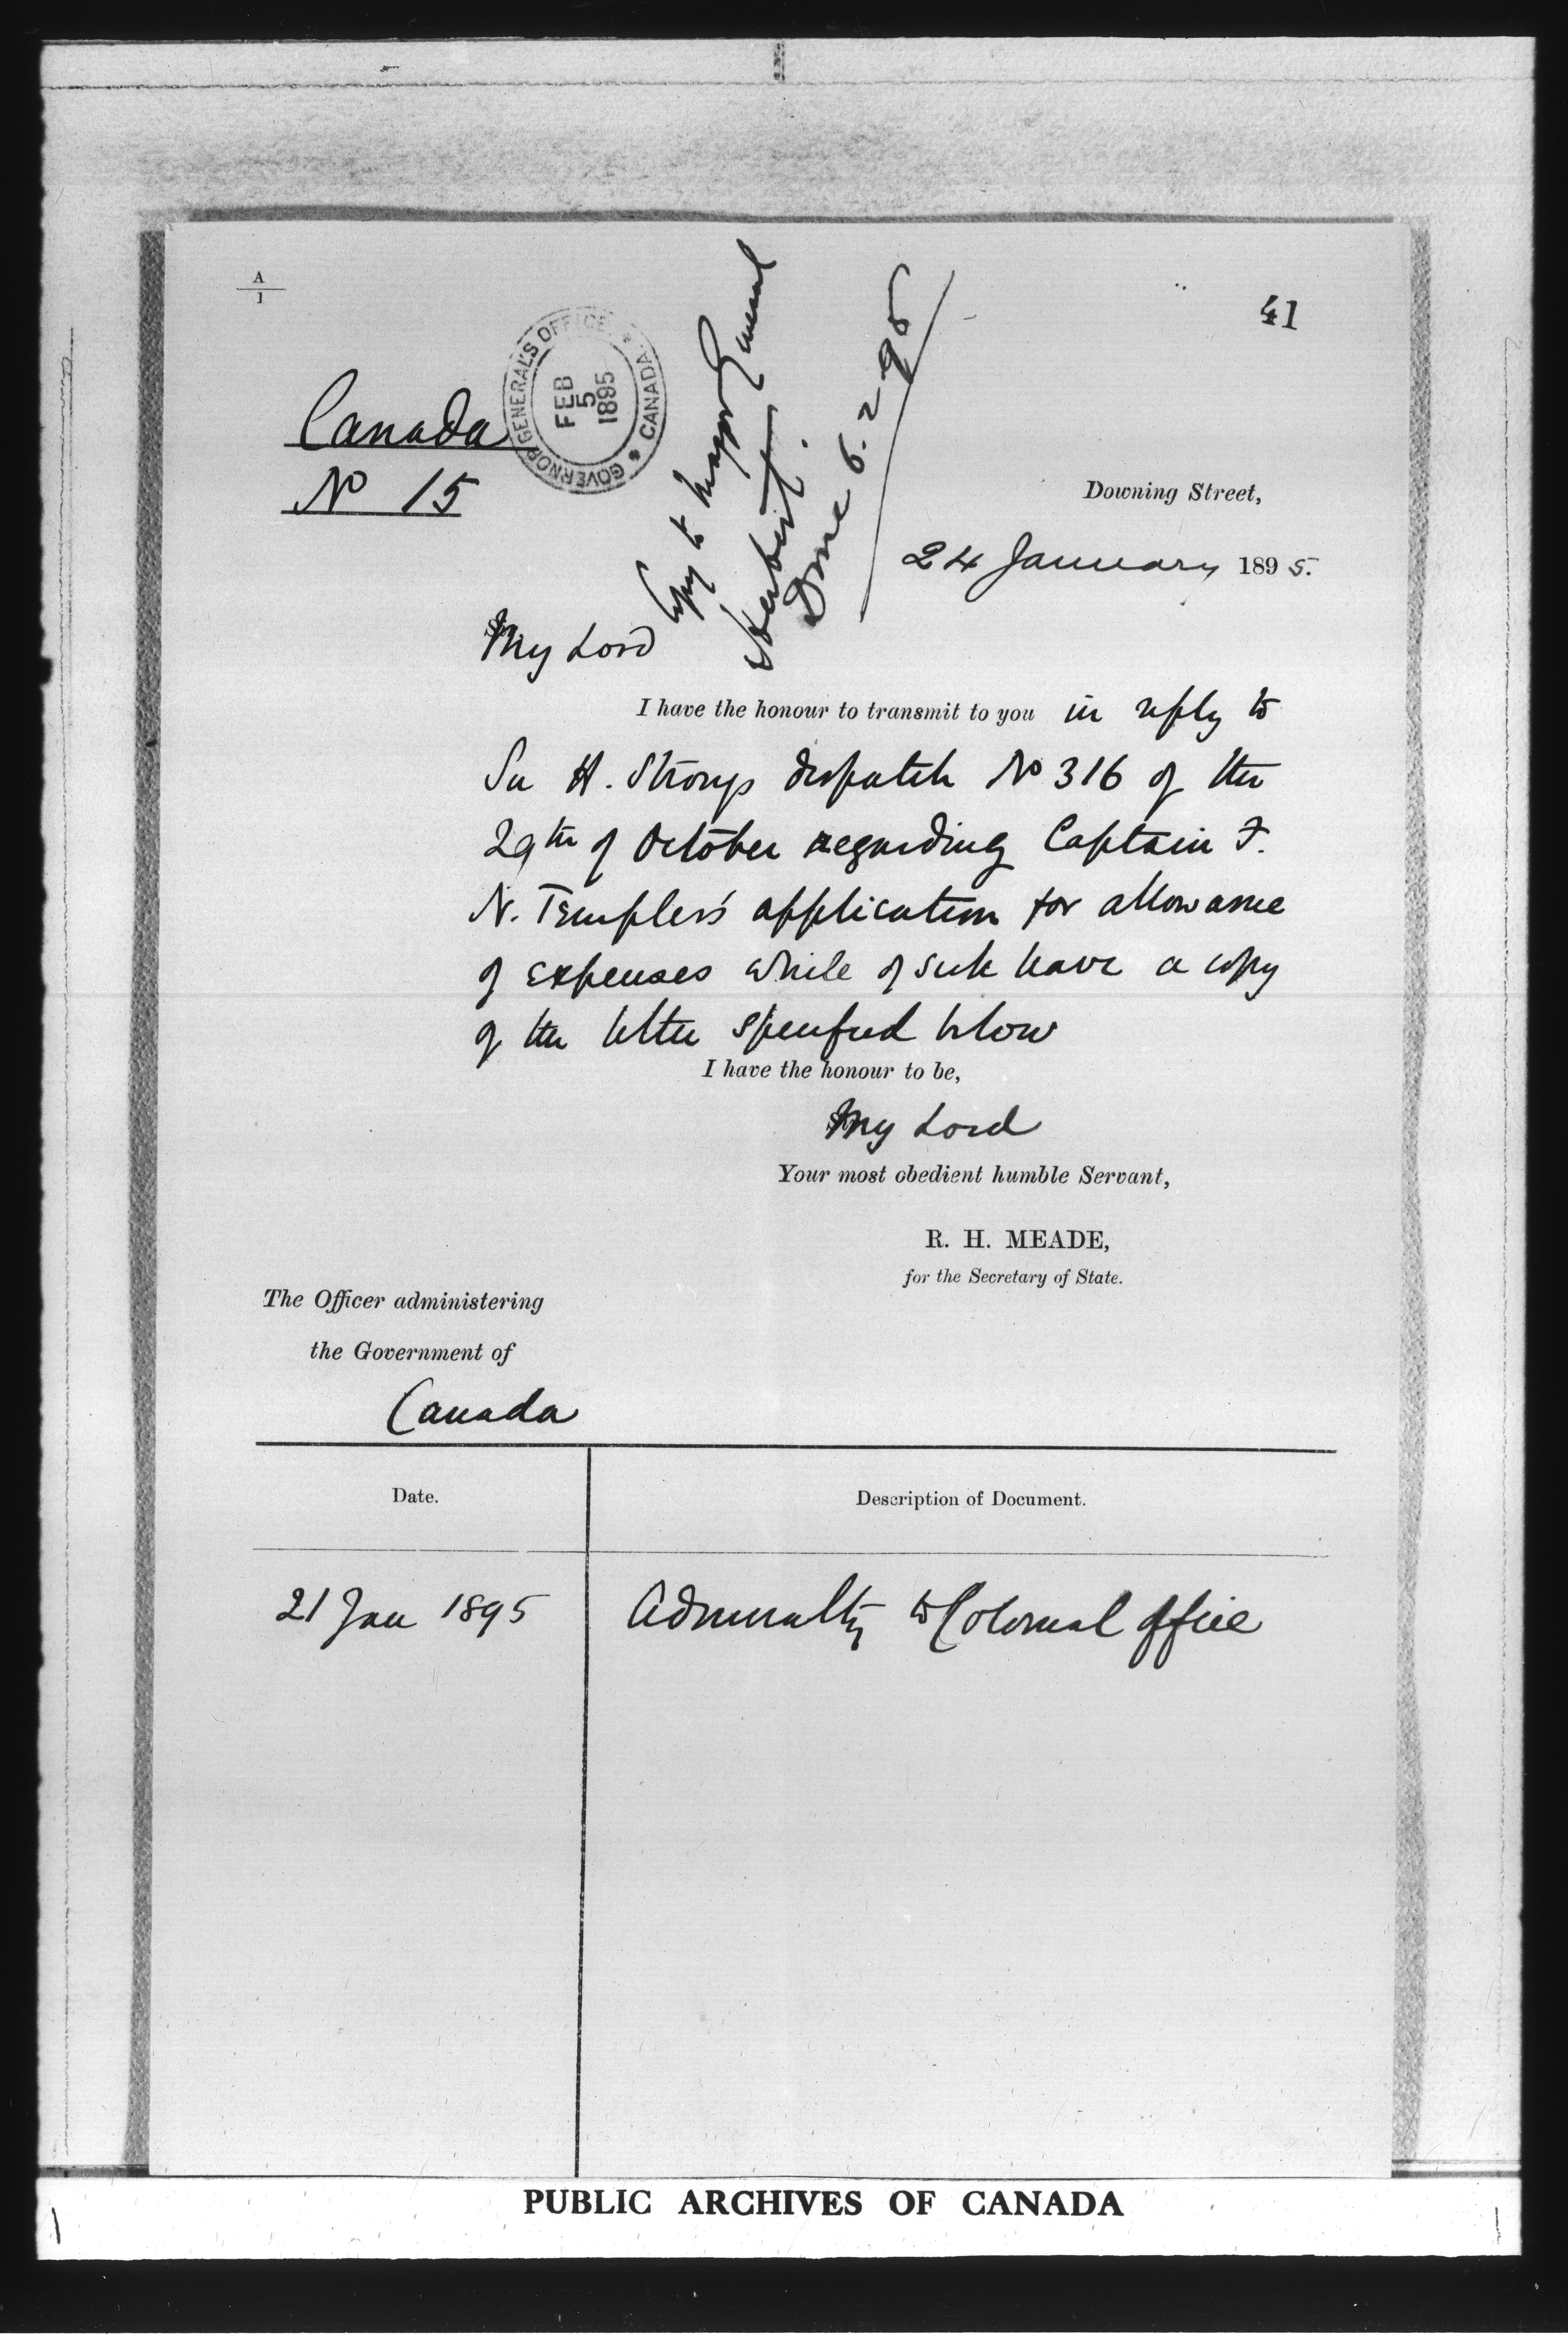 A
1
41
GOVERNOR GENERAL'S OFFICE * CANADA *
FEB
5
1895
Copy to Major General
Herbert.
Done 6.2.95
Canada
No 15
Downing Street,
24 January 1895.
My Lord
I have the honour to transmit to you in reply to
Sir H. Strong's despatch No 316 of the
29th of October regarding Captain F.
N. Templer's application for allowance
of expenses while of sick leave a copy
of the letter specified below
I have the honour to be,
My Lord
Your most obedient humble Servant,
R. H. MEADE,
for the Secretary of State.
The Officer administering
the Government of
Canada
Date. Description of Document.
21 Jan 1895 Admiralty to Colonial Office
PUBLIC ARCHIVES OF CANADA